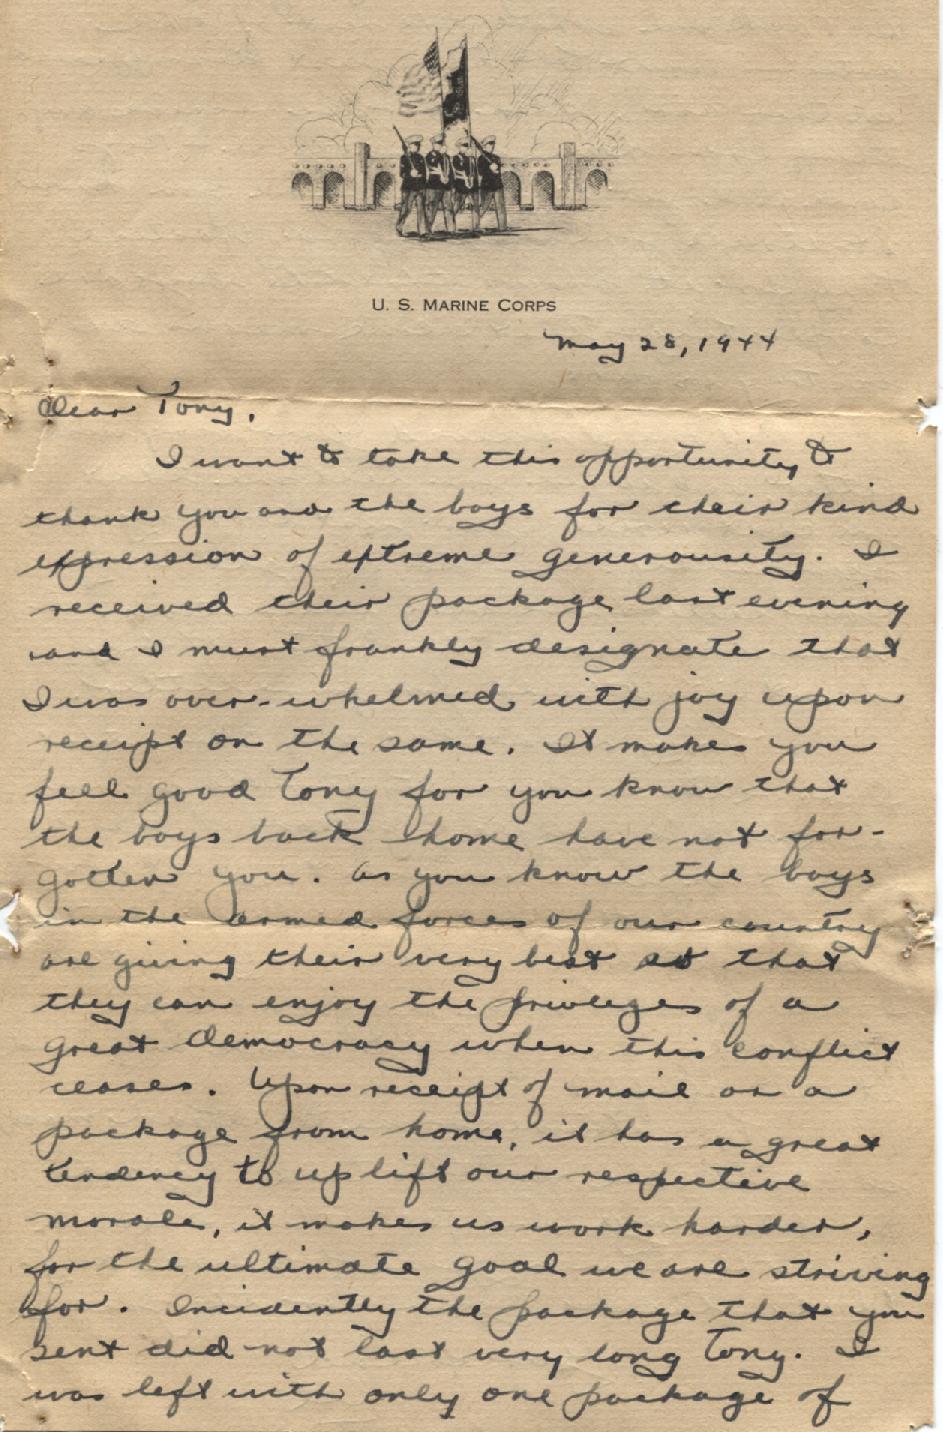 U. S. MARINE CORPS
May 28, 1944
Dear Tony,
I want to take this opportunity to
thank you and the boys for their kind
expression of extreme generousity. I
received their package last evening
and I must frankly designate that
I was over-whelmed with joy upon
receipt on the same. It makes you
feel good Tony for you know that
the boys back home have not for-
gotten you. As you know the boys
in the armed forces of our country
are giving their very best so that
they can enjoy the priveleges of a
great democracy when this conflict
ceases. Upon receipt of mail or a
package from home, it has a great
tendency to up lift our respective
morale, it makes us work harder,
for the ultimate goal we are striving
for. Incidently the package that you
sent did not last very long Tony. I
was left with only one package of